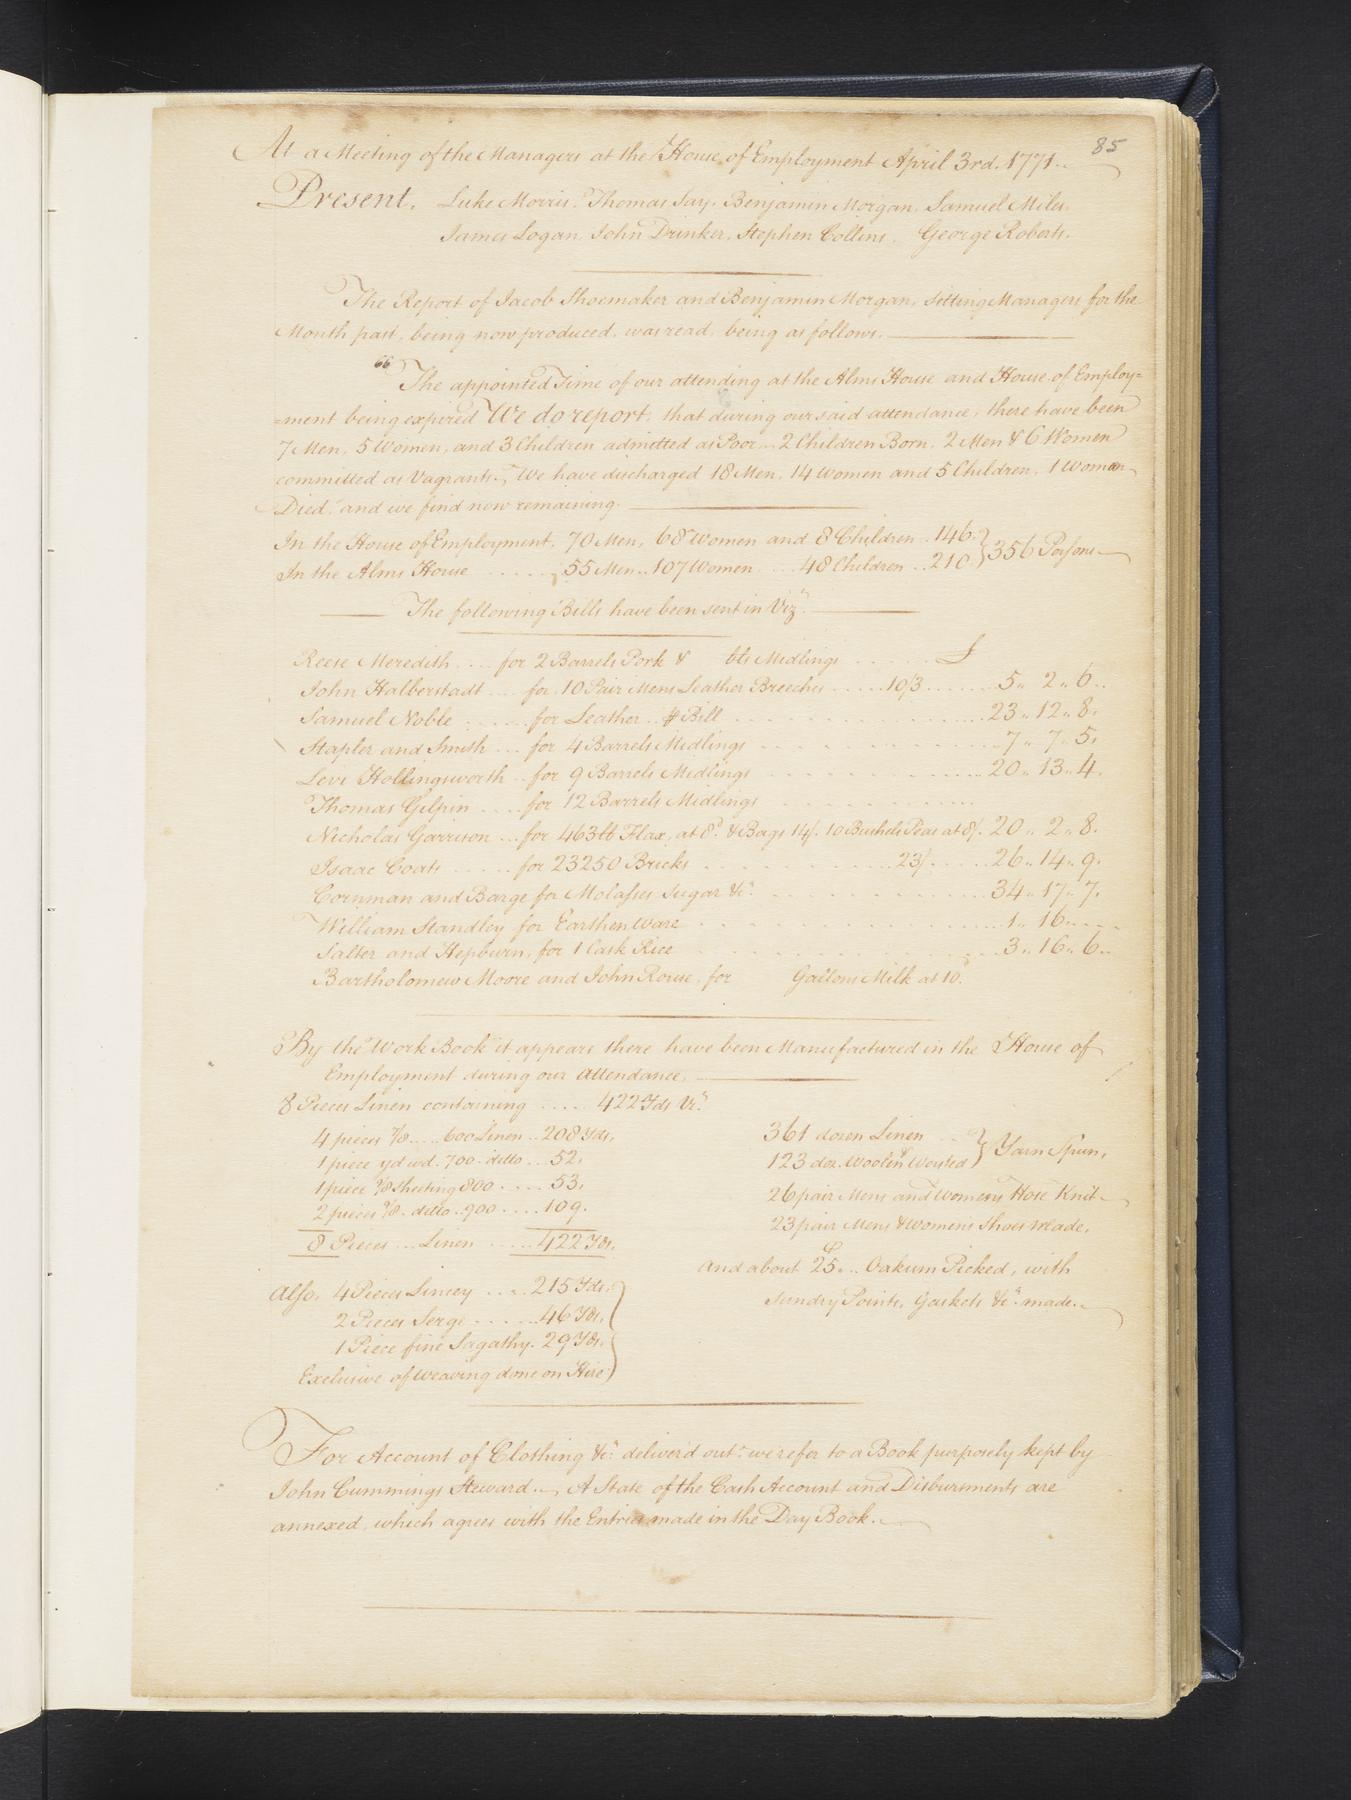 85
At a Meeting of the Managers at the House of Employment April 3rd. 1771..
Present. Luke Morris. Thomas Say. Benjamin Morgan. Samuel Miles.
James Logan. John Drinker. Stephen Collins. George Roberts.
The Report of Jacob Shoemaker and Benjamin Morgan, sitting Managers for the
Month past, being now produced, was read, being as follows.
"The appointed Time of our attending at the Alms House and House of Employ=
=ment being expired We do report, that during our said attendance, there have been
7 Men, 5 Women, and 3 Children admitted as Poor.. 2 Children Born. 2 Men & 6 Women
committed as Vagrants. We have discharged 18 Men, 14 Women and 5 Children. 1 Woman
Died, and we find now remaining.
In the House of Employment. 70 Men, 68 Women and 8 Children .. 146. } 356 Persons
In the Alms House ...... 55 Men.. 107 Women .... 48 Children .. 210
The following Bills have been sent in Viz.
Reese Meredith .... for 2 Barrels Pork & bls Midlings ...... £
John Halberstadt .... for 10 Pair Mens Leather Breeches ..... 10/3 ....... 5.. 2.. 6..
Samuel Noble ...... for Leather .. ⅌ Bill ........ 23.. 12.. 8.
Stapler and Smith ... for 4 Barrels Midlings ........ 7.. 7.. 5.
Levi Hollingsworth .. for 9 Barrels Midlings ........ 20.. 13.. 4.
Thomas Gilpin .... for 12 Barrels Midlings ........
Nicholas Garrison ... for 463 lb Flax, at 8d. & Bags 14/. 10 Bushels Peas at 8/. 20.. 2.. 8.
Isaac Coats ...... for 23250 Bricks ........ 23/. ...... 26.. 14.. 9.
Cornman and Barge for Molasses Sugar &c. ........ 34.. 17.. 7.
William Standley for Earthen Ware ........ 1.. 16.....
Salter and Hepburn, for 1 Cask Rice ........ 3.. 16.. 6..
Bartholomew Moore and John Rouse, for Gallons Milk at 10.
By the Work Book it appears there have been Manufactured in the House of
Employment during our Attendance,
8 Pieces Linen containing ..... 422 Yds Vt.
4 pieces 7/8 .... 600 Linen .. 208 Yds.
1 piece yd wd. 700. ditto ... 52.
1 piece 9/8 sheeting 800 ..... 53.
2 pieces 9/8. ditto .. 900 .... 109.
8 Pieces ... Linen ..... 422 Yds.
Also, 4 Pieces Lincey .... 215 Yds.
2 Pieces Serge ...... 46 Yds.
1 Piece fine Sagathy. 29 Yds.
Exclusive of Weaving done on Hire
361 dozen Linen ... } Yarn Spun,
123 doz. Woolen & Worsted
26 pair Mens and Womens Hose Knit
23 pair Mens & Womens Shoes made,
and about 25 ... Oakum Picked, with
sundry Points, Gaskets &c. made..
For Account of Clothing &c. deliver'd out, we refer to a Book purposely kept by
John Cummings Steward.. A State of the Cash Account and Disbursments are
annexed, which agrees with the Entries made in the Day Book.